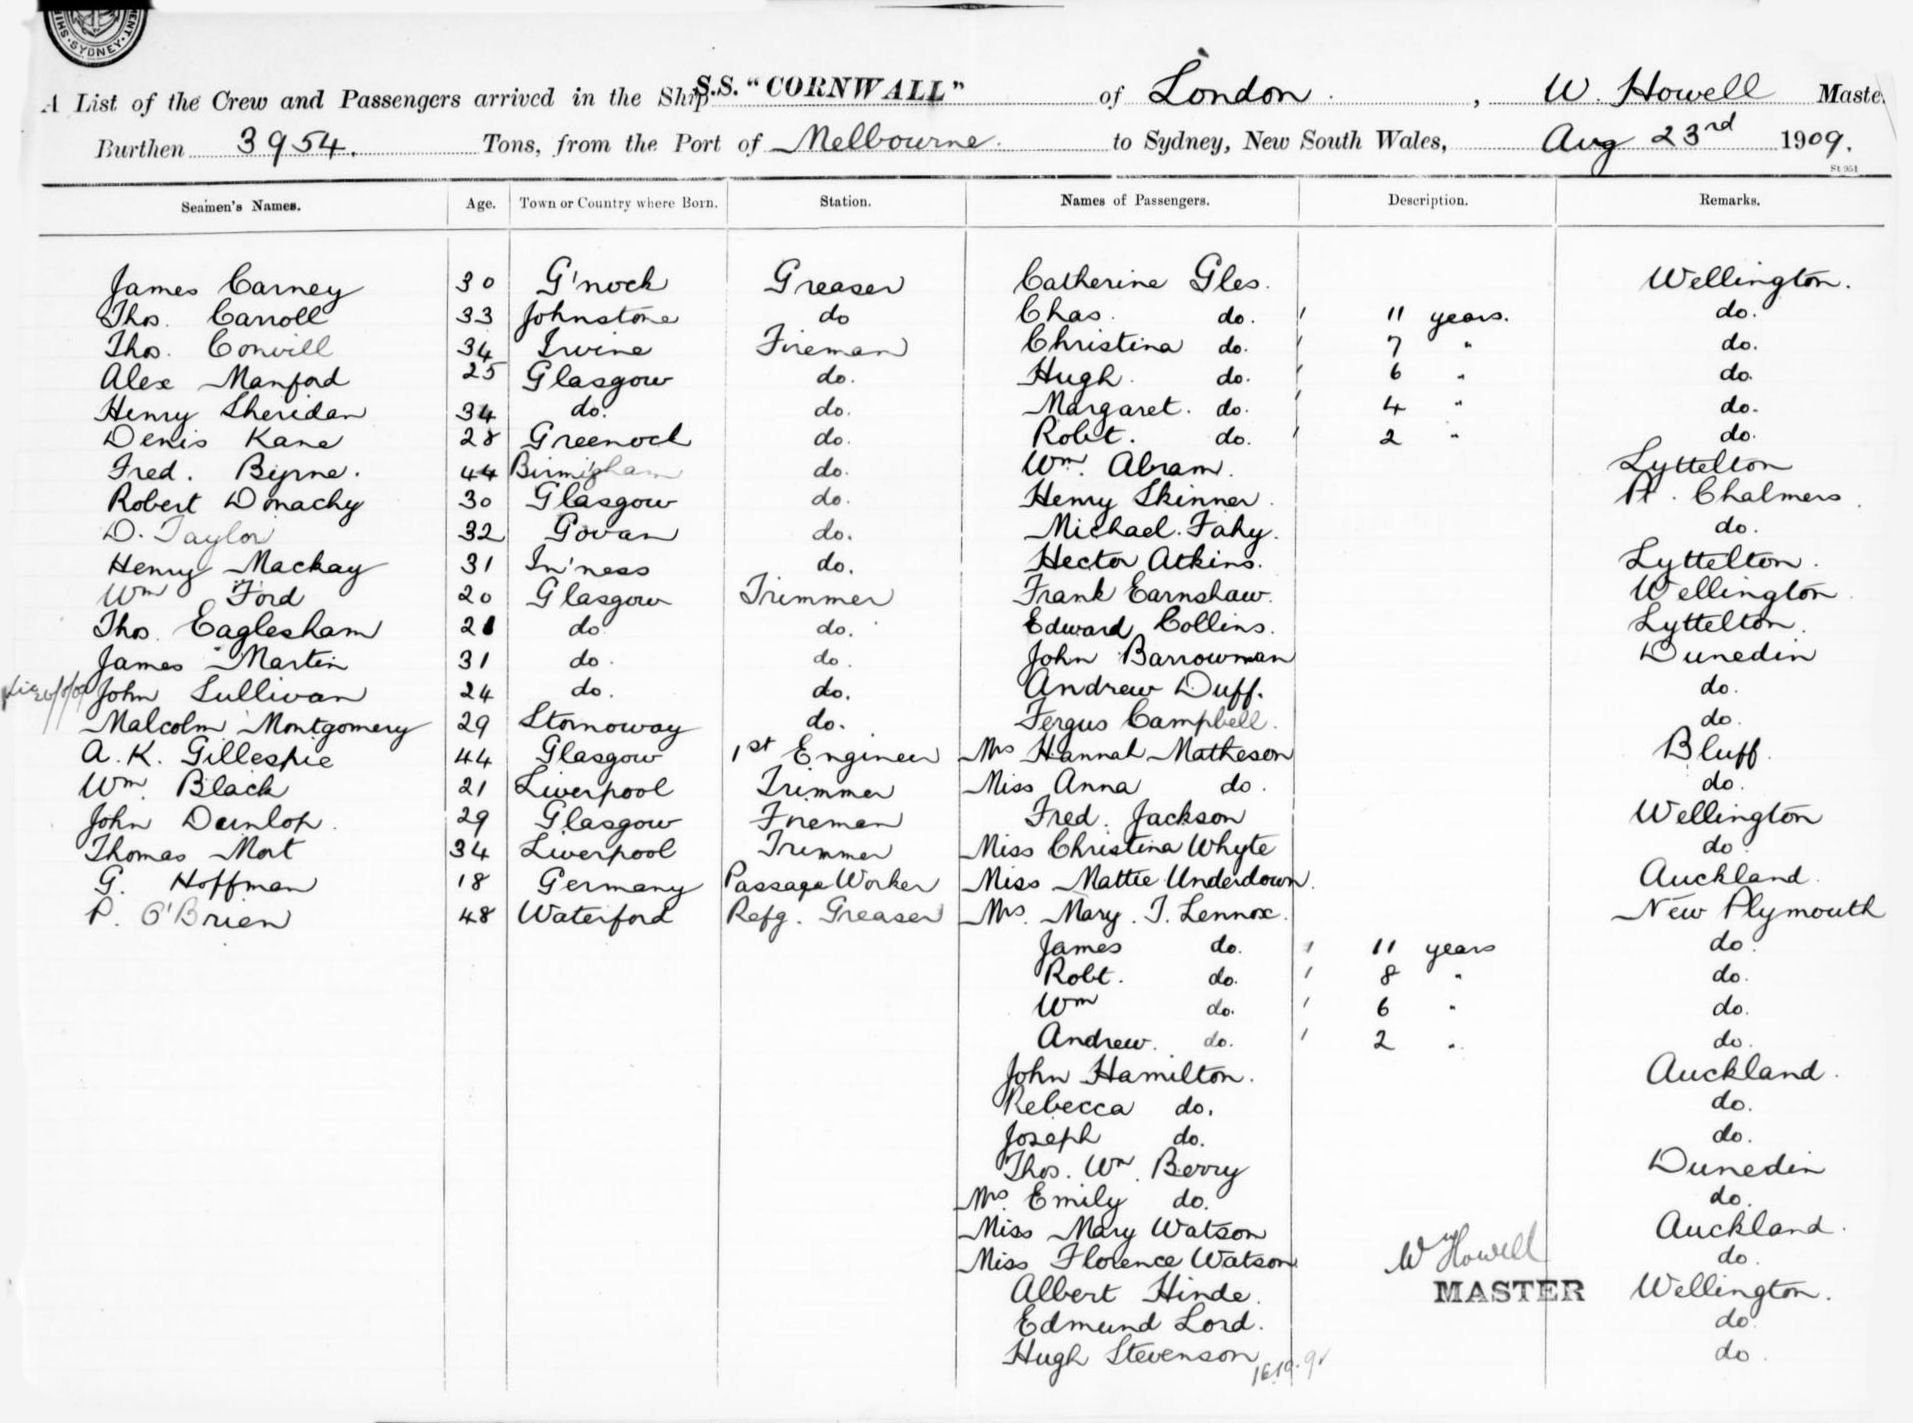 SYDNEY
A List of the Crew and Passengers arrived in the Ship S.S. "CORNWALL" of London, W. Howell Maste
Burthen 3954. Tons, from the Port of Melbourne. to Sydney, New South Wales, Aug 23rd 1909.
St 951
Seamen's Names. Age. Town or Country where Born. Station. Names of Passengers. Description. Remarks.
James Carney 30 G'nock Greaser Catherine Gles. Wellington.
Thos. Carroll 33 Johnstone do Chas. do. ' 11 years. do.
Thos. Convill 34 Irvine Fireman Christina do. ' 7 " do.
Alex Manford 25 Glasgow do. Hugh. do. ' 6 " do.
Henry Sheridan 34 do. do. Margaret. do. ' 4 " do.
Denis Kane 28 Greenock do. Robt. do. ' 2 " do.
Fred. Byrne. 44 Birmigham do. Wm. Abram. Lyttelton
Robert Donachy 30 Glasgow do. Henry Skinner. Pt. Chalmers.
D. Taylor 32 Govan do. Michael. Fahy. do.
Henry Mackay 31 In'ness do. Hector Atkins. Lyttelton.
Wm Ford 20 Glasgow Trimmer Frank Earnshaw. Wellington.
Thos. Eaglesham 21 do do. Edward Collins. Lyttelton.
James Martin 31 do. do. John Barrowman Dunedin
John Sullivan 24 do. do. Andrew Duff. do.
Malcolm Montgomery 29 Stornoway do. Fergus Campbell. do.
A. K. Gillespie 44 Glasgow 1st Engineer Mrs Hannah Matheson Bluff.
Wm. Black 21 Liverpool Trimmer Miss Anna do. do.
John Dunlop. 29 Glasgow Fireman Fred. Jackson Wellington
Thomas Mort 34 Liverpool Trimmer Miss Christina Whyte do.
G. Hoffman 18 Germany Passage Worker Miss Mattie Underdown. Auckland.
P. O'Brien 48 Waterford Refg. Greaser Mrs. Mary. T. Lennox. New Plymouth
James do. ' 11 years do.
Robt. do. ' 8 " do.
Wm do. ' 6 " do.
Andrew. do. ' 2 " do.
John Hamilton. Auckland.
Rebecca do. do.
Joseph do. do.
Thos. Wm. Berry Dunedin
Mrs Emily do. do.
Miss Mary Watson Auckland.
Miss Florence Watson do.
Wm Howell
MASTER
Albert Hinde. Wellington.
Edmund Lord. do
Hugh Stevenson do.